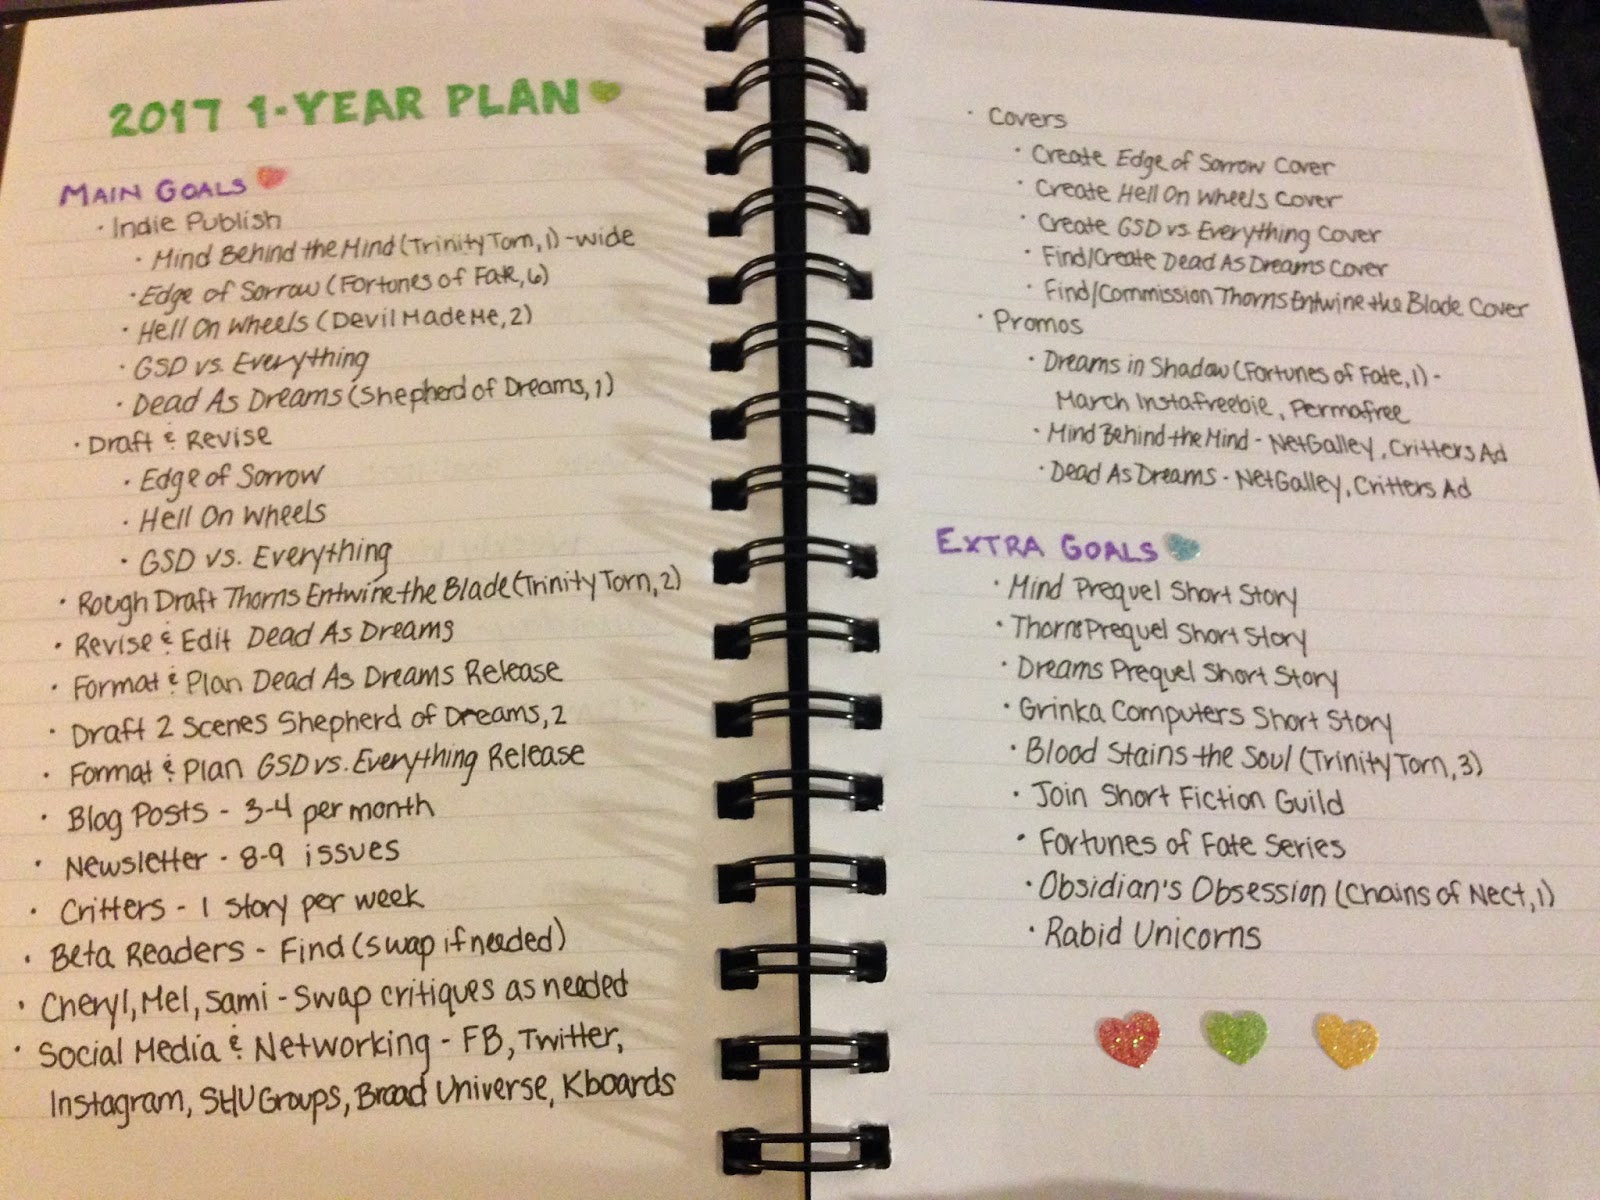 2017 1-YEAR PLAN
MAIN GOALS
· Indie Publish
· Mind Behind the Mind (Trinity Torn, 1) - wide
· Edge of Sorrow (Fortunes of Fate, 6)
· Hell On Wheels (Devil Made Me, 2)
· GSD vs. Everything
· Dead As Dreams (Shepherd of Dreams, 1)
· Draft & Revise
· Edge of Sorrow
· Hell On Wheels
· GSD vs. Everything
· Rough Draft Thorns Entwine the Blade (Trinity Torn, 2)
· Revise & Edit Dead As Dreams
· Format & Plan Dead As Dreams Release
· Draft 2 Scenes Shepherd of Dreams, 2
· Format & Plan GSD vs. Everything Release
· Blog Posts - 3-4 per month
· Newsletter - 8-9 issues
· Critters - 1 story per week
· Beta Readers - Find (swap if needed)
· Cheryl, Mel, Sami - Swap critiques as needed
· Social Media & Networking - FB, Twitter,
Instagram, SHU Groups, Broad Universe, Kboards
· Covers
· Create Edge of Sorrow Cover
· Create Hell On Wheels Cover
· Create GSD vs. Everything Cover
· Find/Create Dead As Dreams Cover
· Find/Commission Thorns Entwine the Blade Cover
· Promos
· Dreams in Shadow (Fortunes of Fate, 1) -
March Instafreebie, Permafree
· Mind Behind the Mind - NetGalley, Critters Ad
· Dead As Dreams - NetGalley, Critters Ad
EXTRA GOALS
· Mind Prequel Short Story
· Thorns Prequel Short Story
· Dreams Prequel Short Story
· Grinka Computers Short Story
· Blood Stains the Soul (Trinity Torn, 3)
· Join Short Fiction Guild
· Fortunes of Fate Series
· Obsidian's Obsession (Chains of Nect, 1)
· Rabid Unicorns